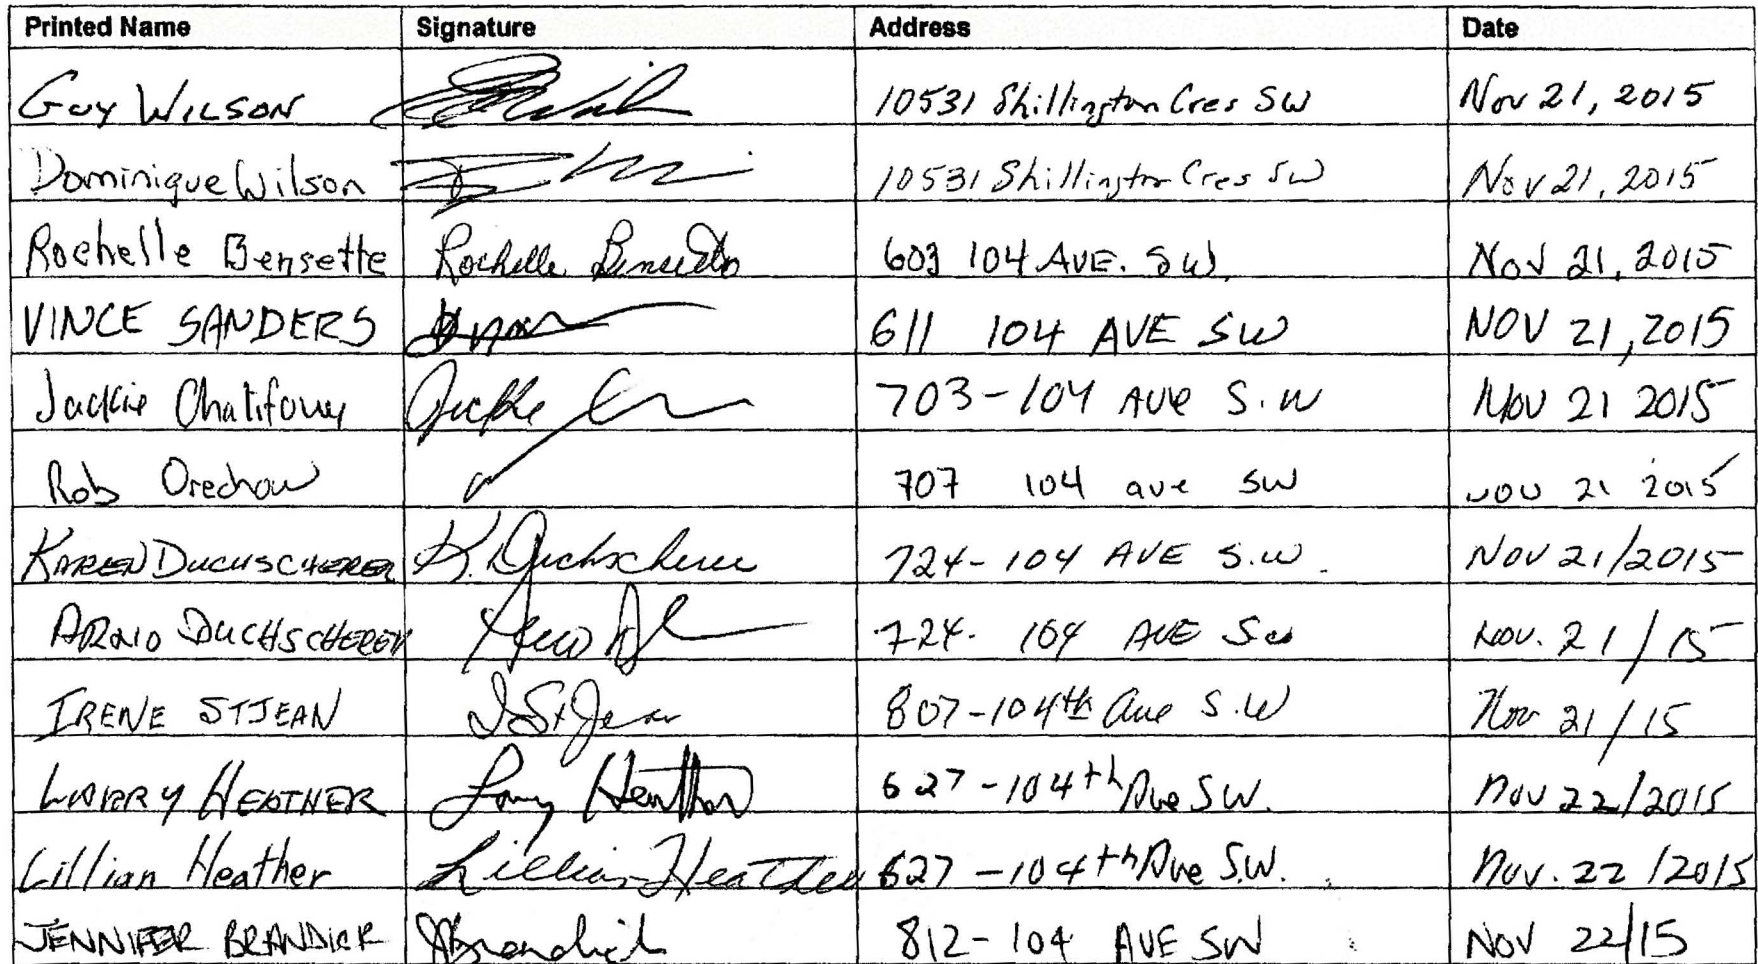 Printed Name Signature Address Date
Guy Wilson 10531 Shillington Cres SW Nov 21, 2015
Dominique Wilson 10531 Shillington Cres SW Nov 21, 2015
Rochelle Bensette Rochelle Bensette 603 104 AVE. SW. Nov 21, 2015
VINCE SANDERS 611 104 AVE SW NOV 21, 2015
Jackie Jackie 703-104 AVE S.W Nov 21 2015
Rob Orechow 707 104 ave SW NOV 21 2015
KAREN DUCHSCHERER K. Duchscherer 724-104 AVE S.W. NOV 21/2015
ARNO DUCHSCHERER 724- 104 AVE SW NOV. 21/15
IRENE STJEAN I StJean 807-104th Ave S.W Nov 21/15
LARRY HEATHER Larry Heather 627-104th Ave SW. Nov 22/2015
Lillian Heather Lillian Heather 627-104th Ave S.W. Nov. 22/2015
JENNIFER BRANDICK JBrandick 812-104 AVE SW NOV 22/15